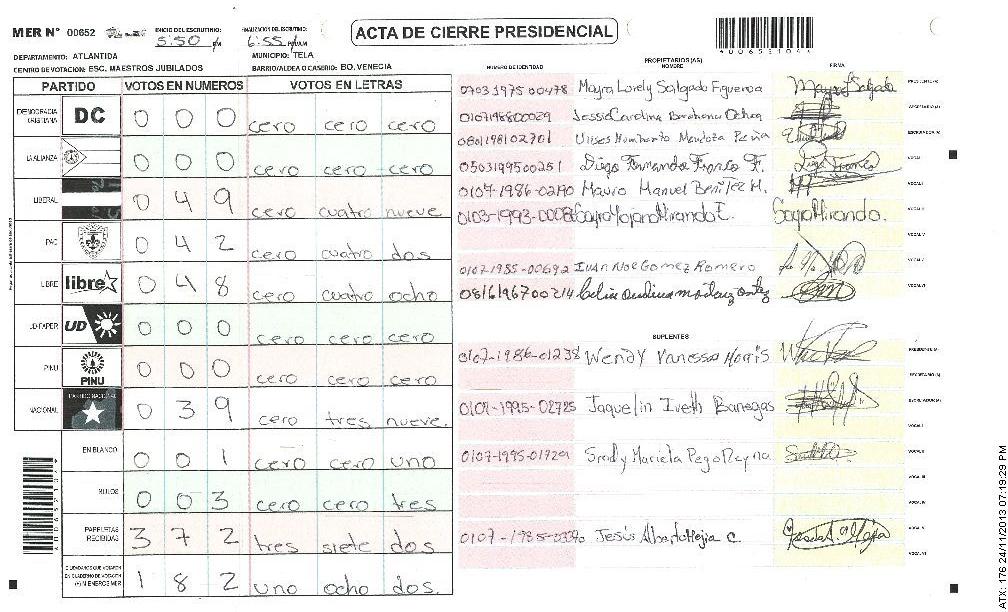 MER N° 00652 INICIO DEL ESCRUTINIO: 5:50 PM FINALIZACIÓN DEL ESCRUTINIO: 6:55
ACTA DE CIERRE PRESIDENCIAL
DEPARTAMENTO: ATLANTIDA MUNICIPIO: TELA
CENTRO DE VOTACION: ESC. MAESTROS JUBILADOS BARRIO/ALDEA O CASERIO: BO. VENECIA
PARTIDO VOTOS EN NUMEROS VOTOS EN LETRAS
DEMOCRACIA CRISTIANA DC 0 0 0 cero cero cero
LA ALIANZA 0 0 0 cero cero cero
LIBERAL 0 4 9 cero cuatro nueve
PAC 0 4 2 cero cuatro dos
LIBRE libre 0 4 8 cero cuatro ocho
UD-FAPER UD 0 0 0 cero cero cero
PINU PINU 0 0 0 cero cero cero
NACIONAL PARTIDO NACIONAL 0 3 9 cero tres nueve.
EN BLANCO 0 0 1 cero cero uno
NULOS 0 0 3 cero cero tres
PAPELETAS RECIBIDAS 3 7 2 tres siete dos
CIUDADANOS QUE VOTARON EN CUADERNO DE VOTACION 1 8 2 uno ocho dos.
NUMERO DE IDENTIDAD PROPIETARIOS (AS) NOMBRE FIRMA
0703 1975 00478 Mayra Lorely Salgado Figueroa Mayra Salgado
0107198800029 Jessica Carolina Barahona Ochoa
0801198102701 Ulises Humberto Mendoza Peña
0503199500251 Diego Fernando Franco F. Diego Franco
0107-1986-02190 Mauro Manuel Benitez M.
0103-1993-0008 Gayra Mirando.
0107-1985-00692 Ivan Noe Gomez Romero
0816196700214
SUPLENTES
0107-1986-01238 Wendy Vanessa Morris
0107-1995-02725 Jaquelin Iveth Banegas
0107-1995-01720 Mariela
0107-1985-03390 Jesús Alberto Mejia C.
ATX: 176 24/11/2013 07:19:29 PM